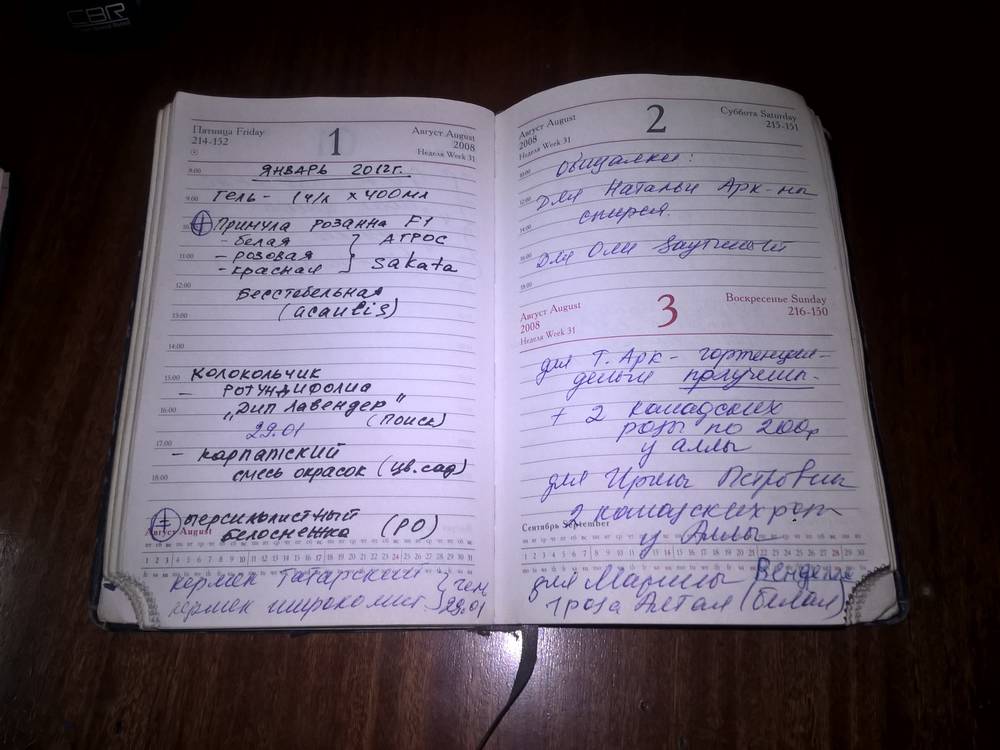 CBR
Пятница Friday
214-152
1
Август August
2008
Неделя Week 31
8:00
ЯНВАРЬ 2012г.
9:00
Гель - 1ч/л х 400мл
Примула розанна F1
- белая
АГРОС
11:00
- розовая
- красная
Sakata
12:00
Бесстебельная
13:00
(acaulis)
14:00
15:00
Колокольчик
- РОТУНДИФОЛИА
16:00
"Дип Лавендер"
29.01
(Поиск)
17:00
- Карпатский
18:00
смесь окрасок (цв. сад)
персиколистный
Август August
белоснежка
(РО)
1 2 3 4 5 6 7 8 9 10 11 12 13 14 15 16 17 18 19 20 21 22 23 24 25 26 27 28 29 30 31
кермек Татарский
кермек широколист.
29.01
Август August
2008
Неделя Week 31
2
Суббота Saturday
215-151
10:00
Обещалки:
12:00
Для Натальи Арк-ны
спирея.
14:00
16:00
Для Оли
18:00
Август August
2008
Неделя Week 31
3
Воскресенье Sunday
216-150
для Т. Арк - гортензия -
деньги получены.
+ 2 канадских
розы по 200р
у аллы
для Ирины Петровны
2 канадских роз
Сентябрь September
у Аллы
1 2 3 4 5 6 7 8 9 10 11 12 13 14 15 16 17 18 19 20 21 22 23 24 25 26 27 28 29 30
для Марины
1 роза Алтая (белая)